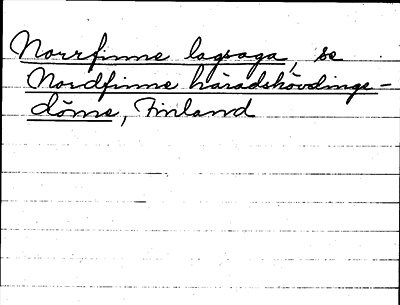 Norrfinne lagsaga, se
Nordfinne häradshövdinge-
döme, Finland